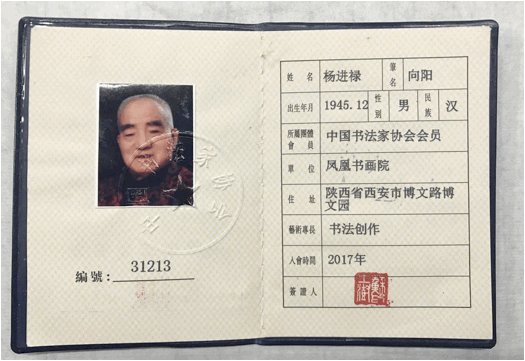 編號：31213
姓名 杨进禄 筆名 向阳
出生年月 1945.12 性别 男 民族 汉
所屬團體會員 中国书法家协会会员
單位 凤凰书画院
住址 陕西省西安市博文路博
文园
藝術專長 书法创作
入會時間 2017年
簽證人